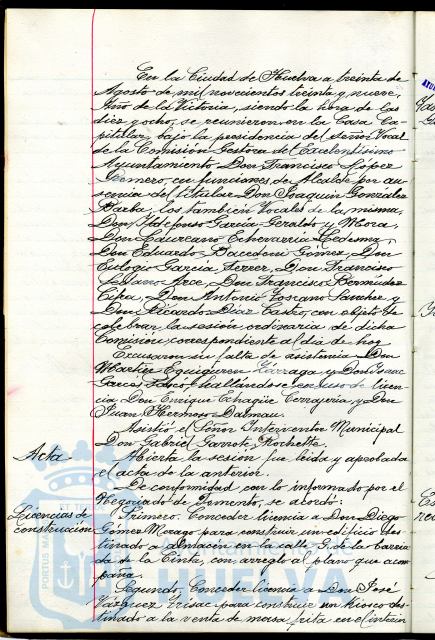 En la Ciudad de Huelva a treinta de
Agosto de mil novecientos treinta y nueve,
Año de la Victoria, siendo la hora de las
diez y ocho, se reunieron en la Casa Ca-
pitular, bajo la presidencia del Señor Vocal
de la Comisión Gestora del Excelentísimo
Ayuntamiento Don Francisco López
Romero, en funciones de Alcalde por au-
sencia del titular Don Joaquín González
Barba, los también Vocales de la misma,
Don Ildefonso García-Geraldo y Mora,
Don Laureano Echevarría Ledesma,
Don Eduardo Gómez, Don
Eulogio García Ferrer, Don Francisco
Arce, Don Francisco Bermúdez
Cifra, Don Antonio Toscano Sánchez y
Don Ricardo Díaz Castro, con objeto de
celebrar la sesión ordinaria de dicha
Comisión, correspondiente al día de hoy.
Excusaron su falta de asistencia Don
Martín Eguiguren y Don Isaac
hallándose en uso de licen-
cia Don Enrique Echagüe y Don
Juan Hermoso Dalmau.
Asistió el Señor Interventor Municipal
Don Gabriel Rochette.
Acta. Abierta la sesión fue leída y aprobada
el acta de la anterior.
De conformidad con lo informado por el
Negociado de Fomento, se acordó:
Licencias de construcción
Primero. Conceder licencia a Don Diego
Gómez Morago para construir un edificio des-
tinado a almacén en la calle G. de la barria-
da de la Cinta, con arreglo al plano que acom-
paña.
Segundo. Conceder licencia a Don José
Vázquez para construir un kiosco des-
tinado a la venta de masa frita en el interior
PORTUS MARIS
HUELVA